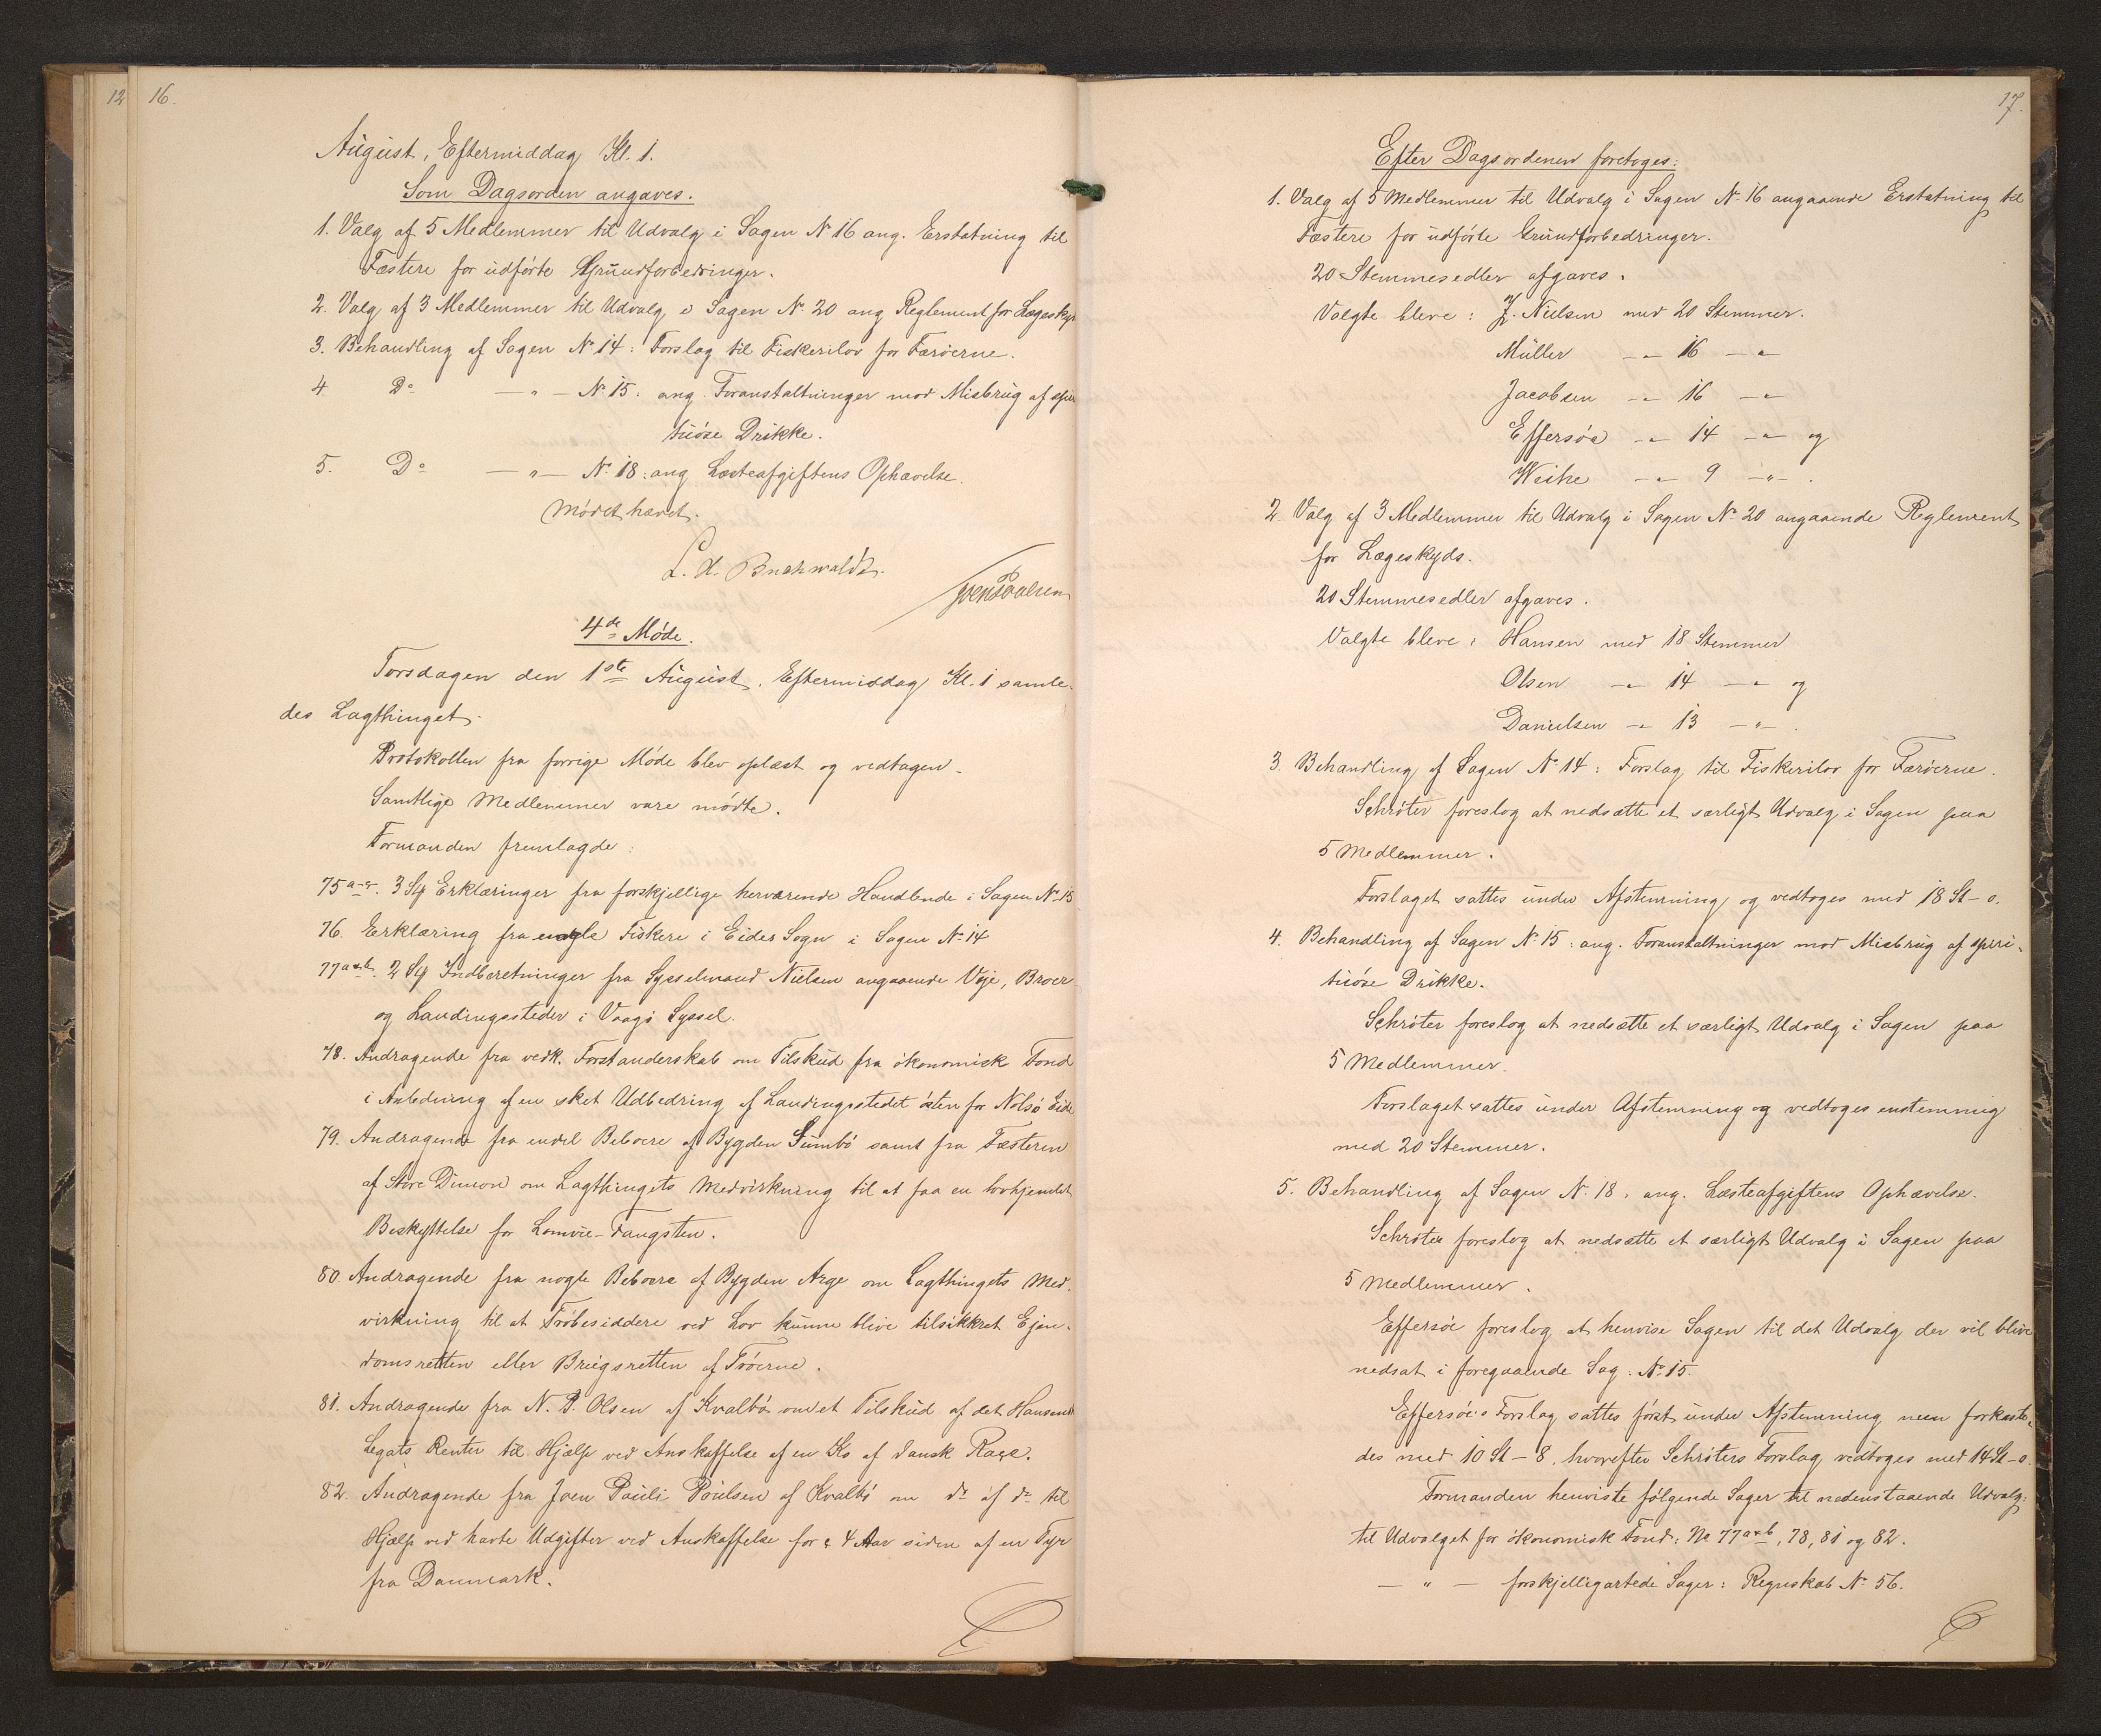 12
16.
August, Eftermiddag Kl. 1.
Som Dagsorden angaves.
1. Valg af 5 Medlemmer til Udvalg i Sagen No 16 ang. Erstatning til
Fæstere for udførte Grundforbedringer.
2. Valg af 3 Medlemmer til Udvalg i Sagen No 20 ang Reglement for Lægeskyds
3. Behandling af Sagen No 14: Forslag til Fiskerilov for Færøerne.
4. Do — " — No 15: ang. Foranstaltninger mod Misbrug af spiri
tuøse Drikke.
5. Do — " — No 18: ang Læsteafgiftens Ophævelse.
Mødet hævet.
L. H. Buchwaldt.
Joen Poulsen
4de Møde.
Torsdagen den 1ste August, Eftermiddag Kl. 1 samle-
des Lagthinget.
Protokollen fra forrige Møde blev oplæst og vedtagen.
Samtlige Medlemmer vare mødte.
Formanden fremlagde:
75 a-c. 3 St Erklæringer fra forskjellige herværende Handlende i Sagen No 15
76. Erklæring fra nogle Fiskere i Eides Sogn i Sagen No 14
77 a&b. 2 St Indberetninger fra Sysselmand Nielsen angaaende Veje, Broer
og Landingssteder i Vaagø Syssel.
78. Andragende fra vedk. Forstanderskab om Tilskud fra økonomisk Fond
i Anledning af en sket Udbedring af Landingsstedet østen for Nolsø Eide
79. Andragende fra endel Beboere af Bygden Sumbø samt fra Fæsteren
af Store Dimon om Lagthingets Medvirkning til at faa en lovhjemlet
Beskyttelse for Lomvie-Fangsten.
80. Andragende fra nogle Beboere af Bygden Arge om Lagthingets Med-
virkning til at Trøbesiddere ved Lov kunne blive tilsikkret Ejen-
domsretten eller Brugsretten af Trøerne.
81. Andragende fra N. P. Olsen af Kvalbø om et Tilskud af det Hansenske
Legats Renter til Hjælp ved Anskaffelse af en Ko af dansk Race.
82. Andragende fra Joen Pauli Poulsen af Kvalbø om do af do til
Hjælp ved havte Udgifter ved Anskaffelse for c 4 Aar siden af en Tyr
fra Danmark.
17.
Efter Dagsordenen foretoges:
1. Valg af 5 Medlemmer til Udvalg i Sagen No 16 angaaende Erstatning til
Fæstere for udførte Grundforbedringer.
20 Stemmesedler afgaves.
Valgte bleve: J. Nielsen med 20 Stemmer.
Müller — " — 16 — " —
Jacobsen — " — 16 — " —
Effersøe — " — 14 — " — og
Weihe — " — 9 — " — .
2. Valg af 3 Medlemmer til Udvalg i Sagen No 20 angaaende Reglement
for Lægeskyds.
20 Stemmesedler afgaves.
Valgte bleve: Hansen med 18 Stemmer
Olsen — " — 14 — " — og
Danielsen — " — 13 — " — .
3. Behandling af Sagen No 14: Forslag til Fiskerilov for Færøerne.
Schrøter foreslog at nedsætte et særligt Udvalg i Sagen paa
5 Medlemmer.
Forslaget sattes under Afstemning og vedtoges med 18 St - 0.
4. Behandling af Sagen No 15: ang. Foranstaltninger mod Misbrug af spiri-
tuøse Drikke.
Schrøter foreslog at nedsætte et særligt Udvalg i Sagen paa
5 Medlemmer.
Forslaget sattes under Afstemning og vedtoges enstemmig
med 20 Stemmer.
5. Behandling af Sagen No 18, ang. Læsteafgiftens Ophævelse.
Schrøter foreslog at nedsætte et særligt Udvalg i Sagen paa
5 Medlemmer.
Effersøe foreslog at henvise Sagen til det Udvalg der vil blive
nedsat i foregaaende Sag. No 15.
Effersøe's Forslag sattes først under Afstemning men forkaste-
des med 10 St - 8, hvorefter Schrøters Forslag vedtoges med 14 St - 0.
Formanden henviste følgende Sager til nedenstaaende Udvalg:
til Udvalget for økonomisk Fond: No 77 a&b, 78, 81 og 82.
— " — forskjelligartede Sager: Regnskab No 56.